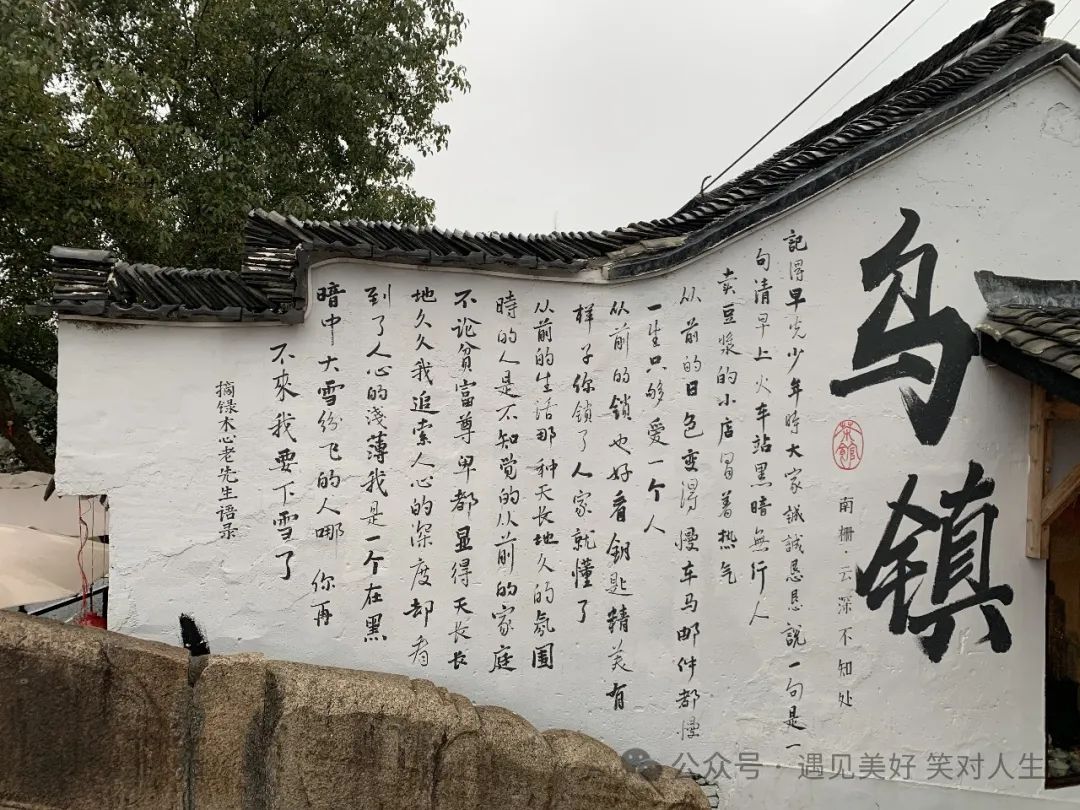 乌镇
茶館
南栅·云深不知处
記得早先少年時大家誠誠恳恳說一句是一
句清早上火车站黑暗無行人
卖豆漿的小店冒着热气
从前的日色变得慢车马邮件都慢
一生只够爱一个人
从前的锁也好看钥匙精美有
样子你锁了人家就懂了
从前的生活那种天长地久的氛围
時的人是不知觉的从前的家庭
不论贫富尊卑都显得天长长
地久久我追索人心的深度却看
到了人心的淺薄我是一个在黑
暗中大雪纷飞的人哪 你再
不來我要下雪了
摘録木心老先生语录
公众号·遇见美好 笑对人生